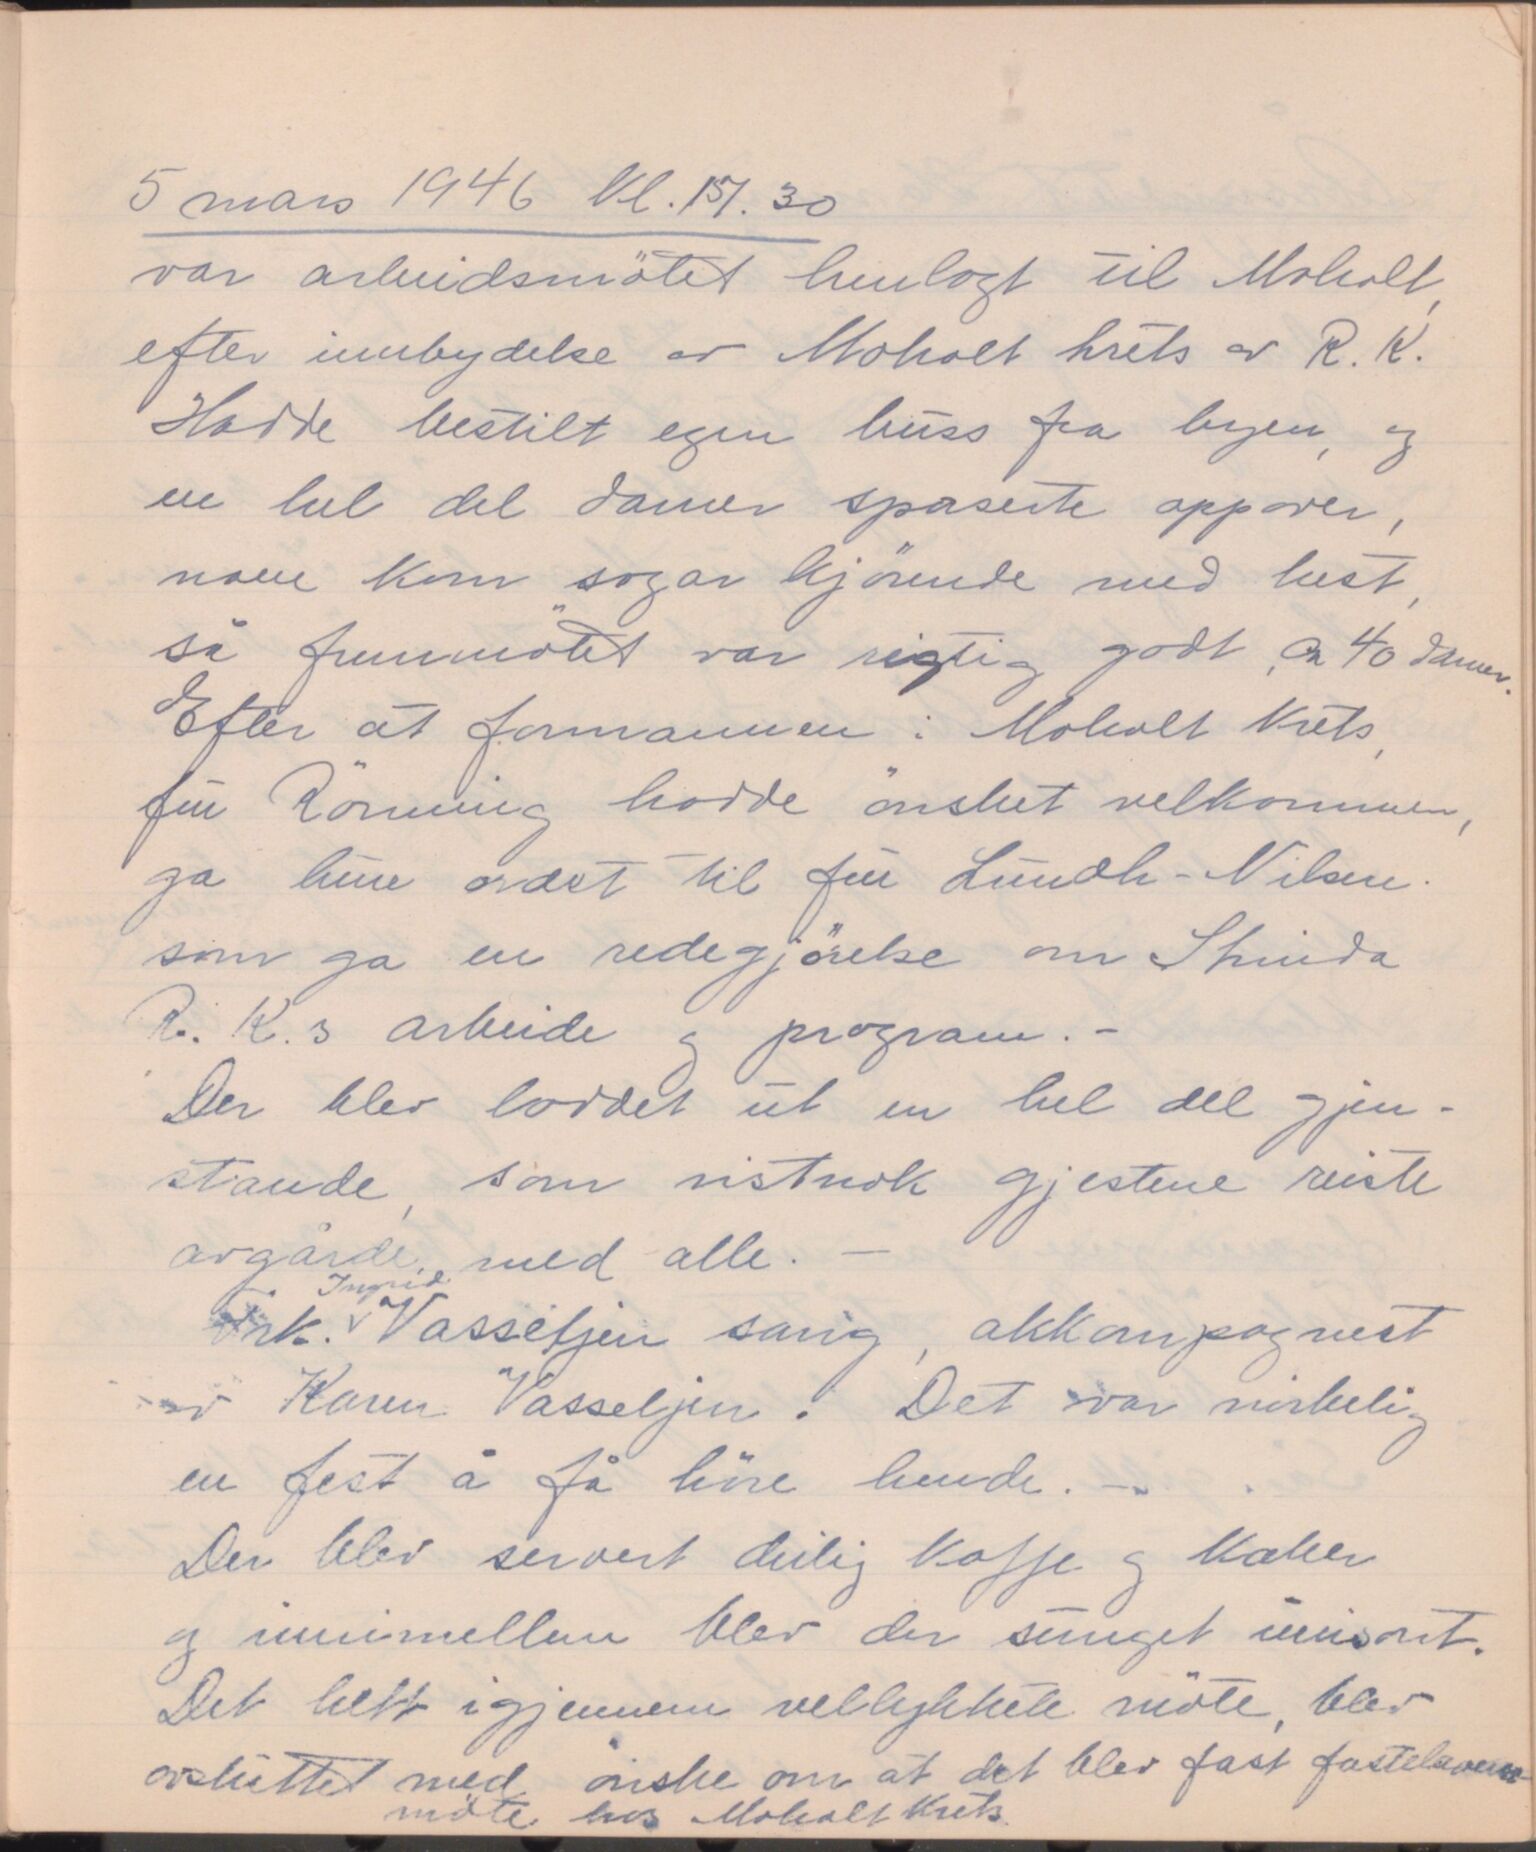 5 mars 1946 kl. 17.30
var arbeidsmötet henlagt til Moholt,
efter innbydelse av Moholt krets av R. K.
Hadde bestilt egen buss fra byen, og
en hel del damer spaserte oppover,
noen kom sogar kjörende med hest,
så fremmötet var rigtig godt, ca 40 damer.
Efter at formannen i Moholt krets,
fru Rönning hadde önsket velkommen,
ga hun ordet til fru Lundh-Nilsen.
som ga en redegjörelse om Strinda
R. K.s arbeide og program. -
Der blev loddet ut en hel del gjen-
stande, som vistnok gjestene reiste
avgårde med alle. -
Frk. Ingrid Vasseljen sang, akkompagnert
av Karen Vasseljen. Det var virkelig
en fest å få höre hende. -
Der blev servert deilig kaffe og kaker
og innimellem blev der sunget unisont.
Det helt igjennem vellykkete möte, blev
avsluttet med önske om at det blev fast fastelavens-
möte hos Moholt krets.